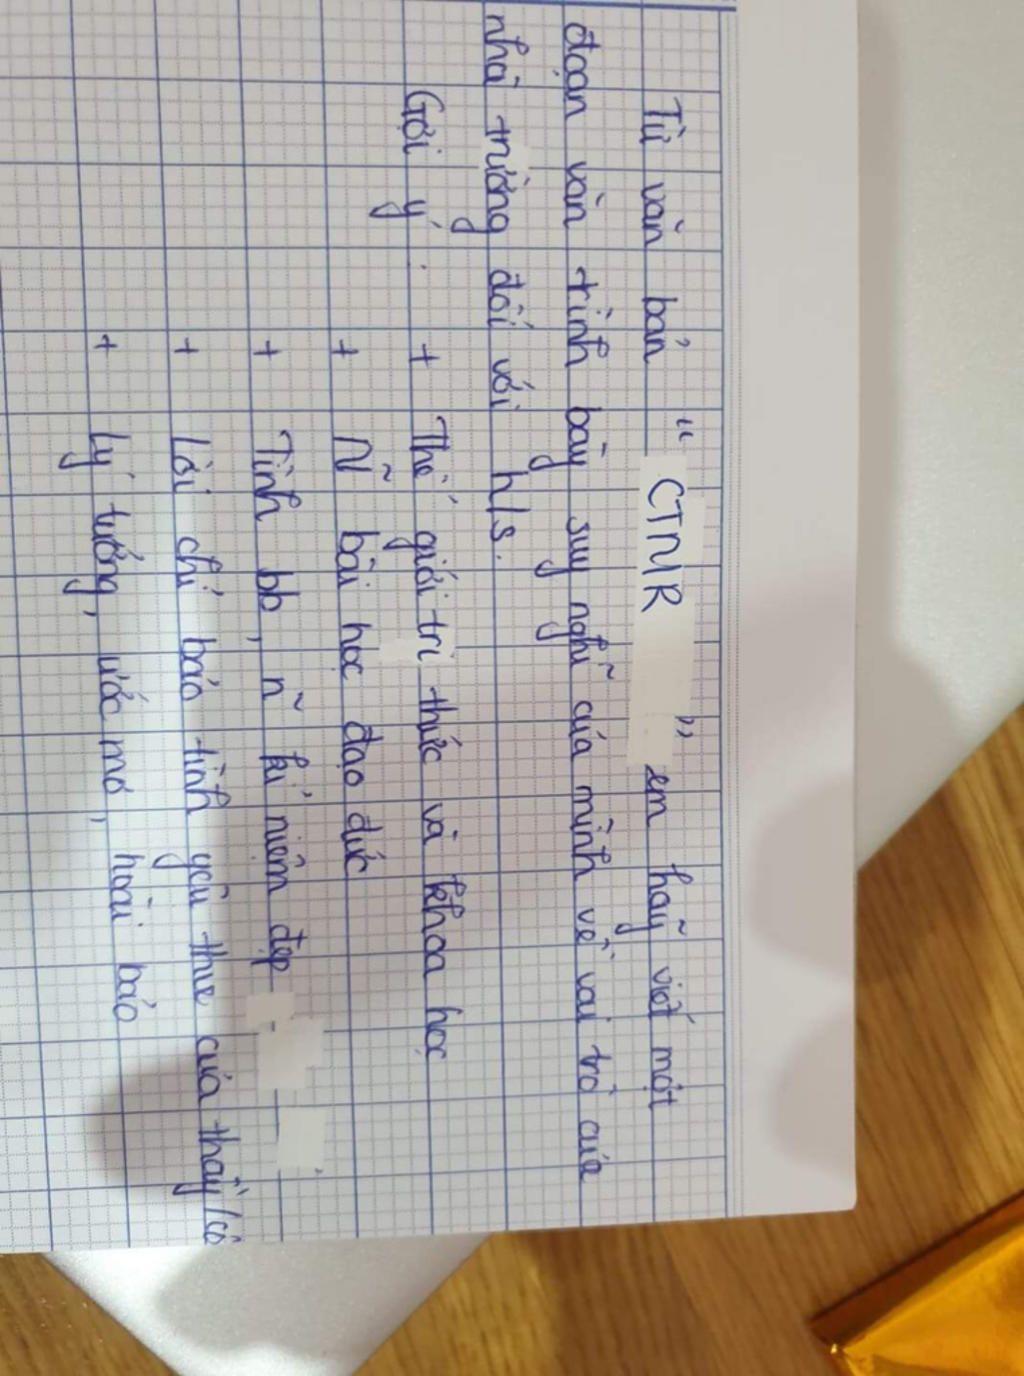 Từ văn bản " CTMR " em hãy viết một
đoạn văn trình bày suy nghĩ của mình về vai trò của
nhà trường đối với h/s.
Gợi ý : + Thế giới tri thức và khoa học
+ N~ bài học đạo đức
+ Tình bb, n~ kỉ niệm đẹp
+ Lời chỉ bảo tình yêu thw của thầy/cô
+ Lý tưởng, ước mơ, hoài bão